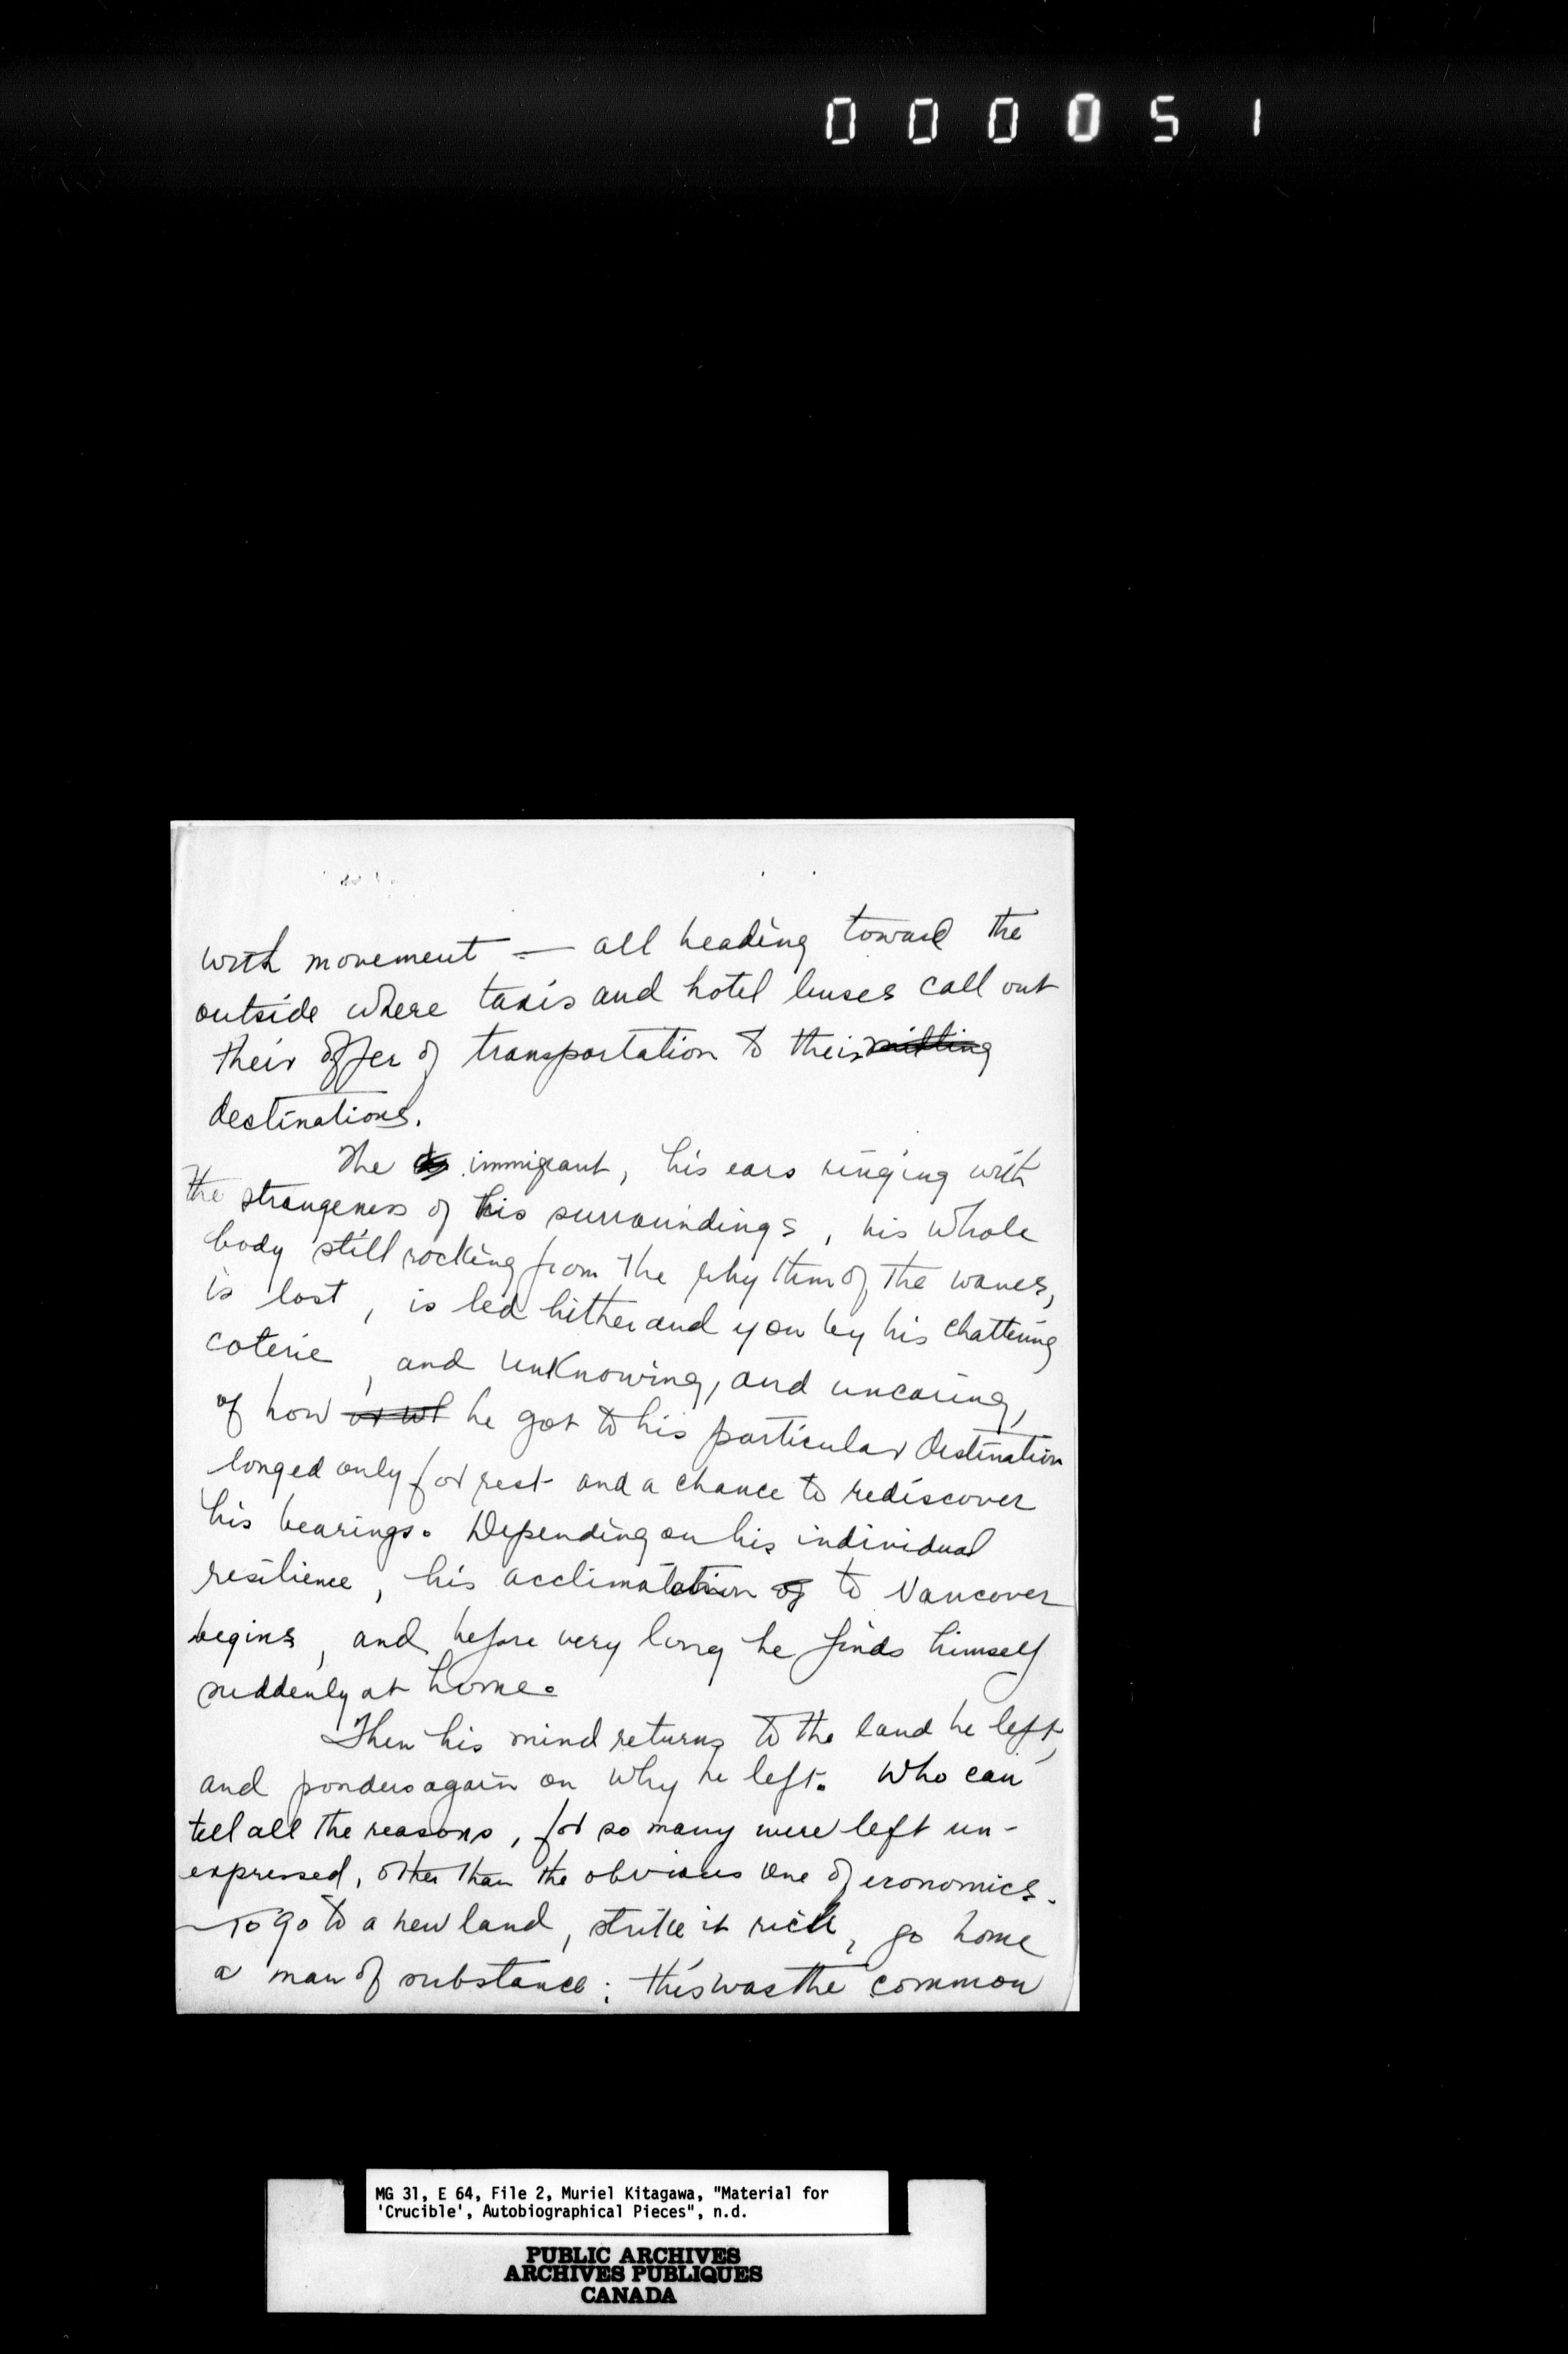 000051
with movement — all heading toward the
outside where taxis and hotel buses call out
their offer of transportation to their
destinations.
The immigrant, his ears ringing with
the strangeness of his surroundings, his whole
body still rocking from the rhythm of the waves,
is lost, is led hither and yon by his chattering
coterie, and unknowing, and uncaring,
of how or wh he got to his particular destination
longed only for rest and a chance to rediscover
his bearings. Depending on his individual
resilience, his acclimatation of to Vancover
begins, and before very long he finds himself
suddenly at home.
Then his mind returns to the land he left,
and ponders again on why he left. Who can
tell all the reasons, for so many were left un-
expressed, other than the obvious one of economics.
To go to a new land, strike it rich, go home
a man of substance: this was the common
MG 31, E 64, File 2, Muriel Kitagawa, "Material for
'Crucible', Autobiographical Pieces", n.d.
PUBLIC ARCHIVES
ARCHIVES PUBLIQUES
CANADA